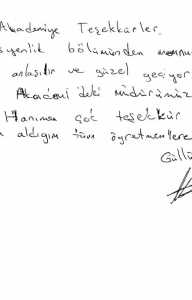 Akademiye Teşekkürler.
syenlik bölümünden memnu
anlaşılır ve güzel geçiyor
Akademi'deki müdürümüz
Hanıma çok teşekkür
aldığım tüm öğretmenlere
Güllü